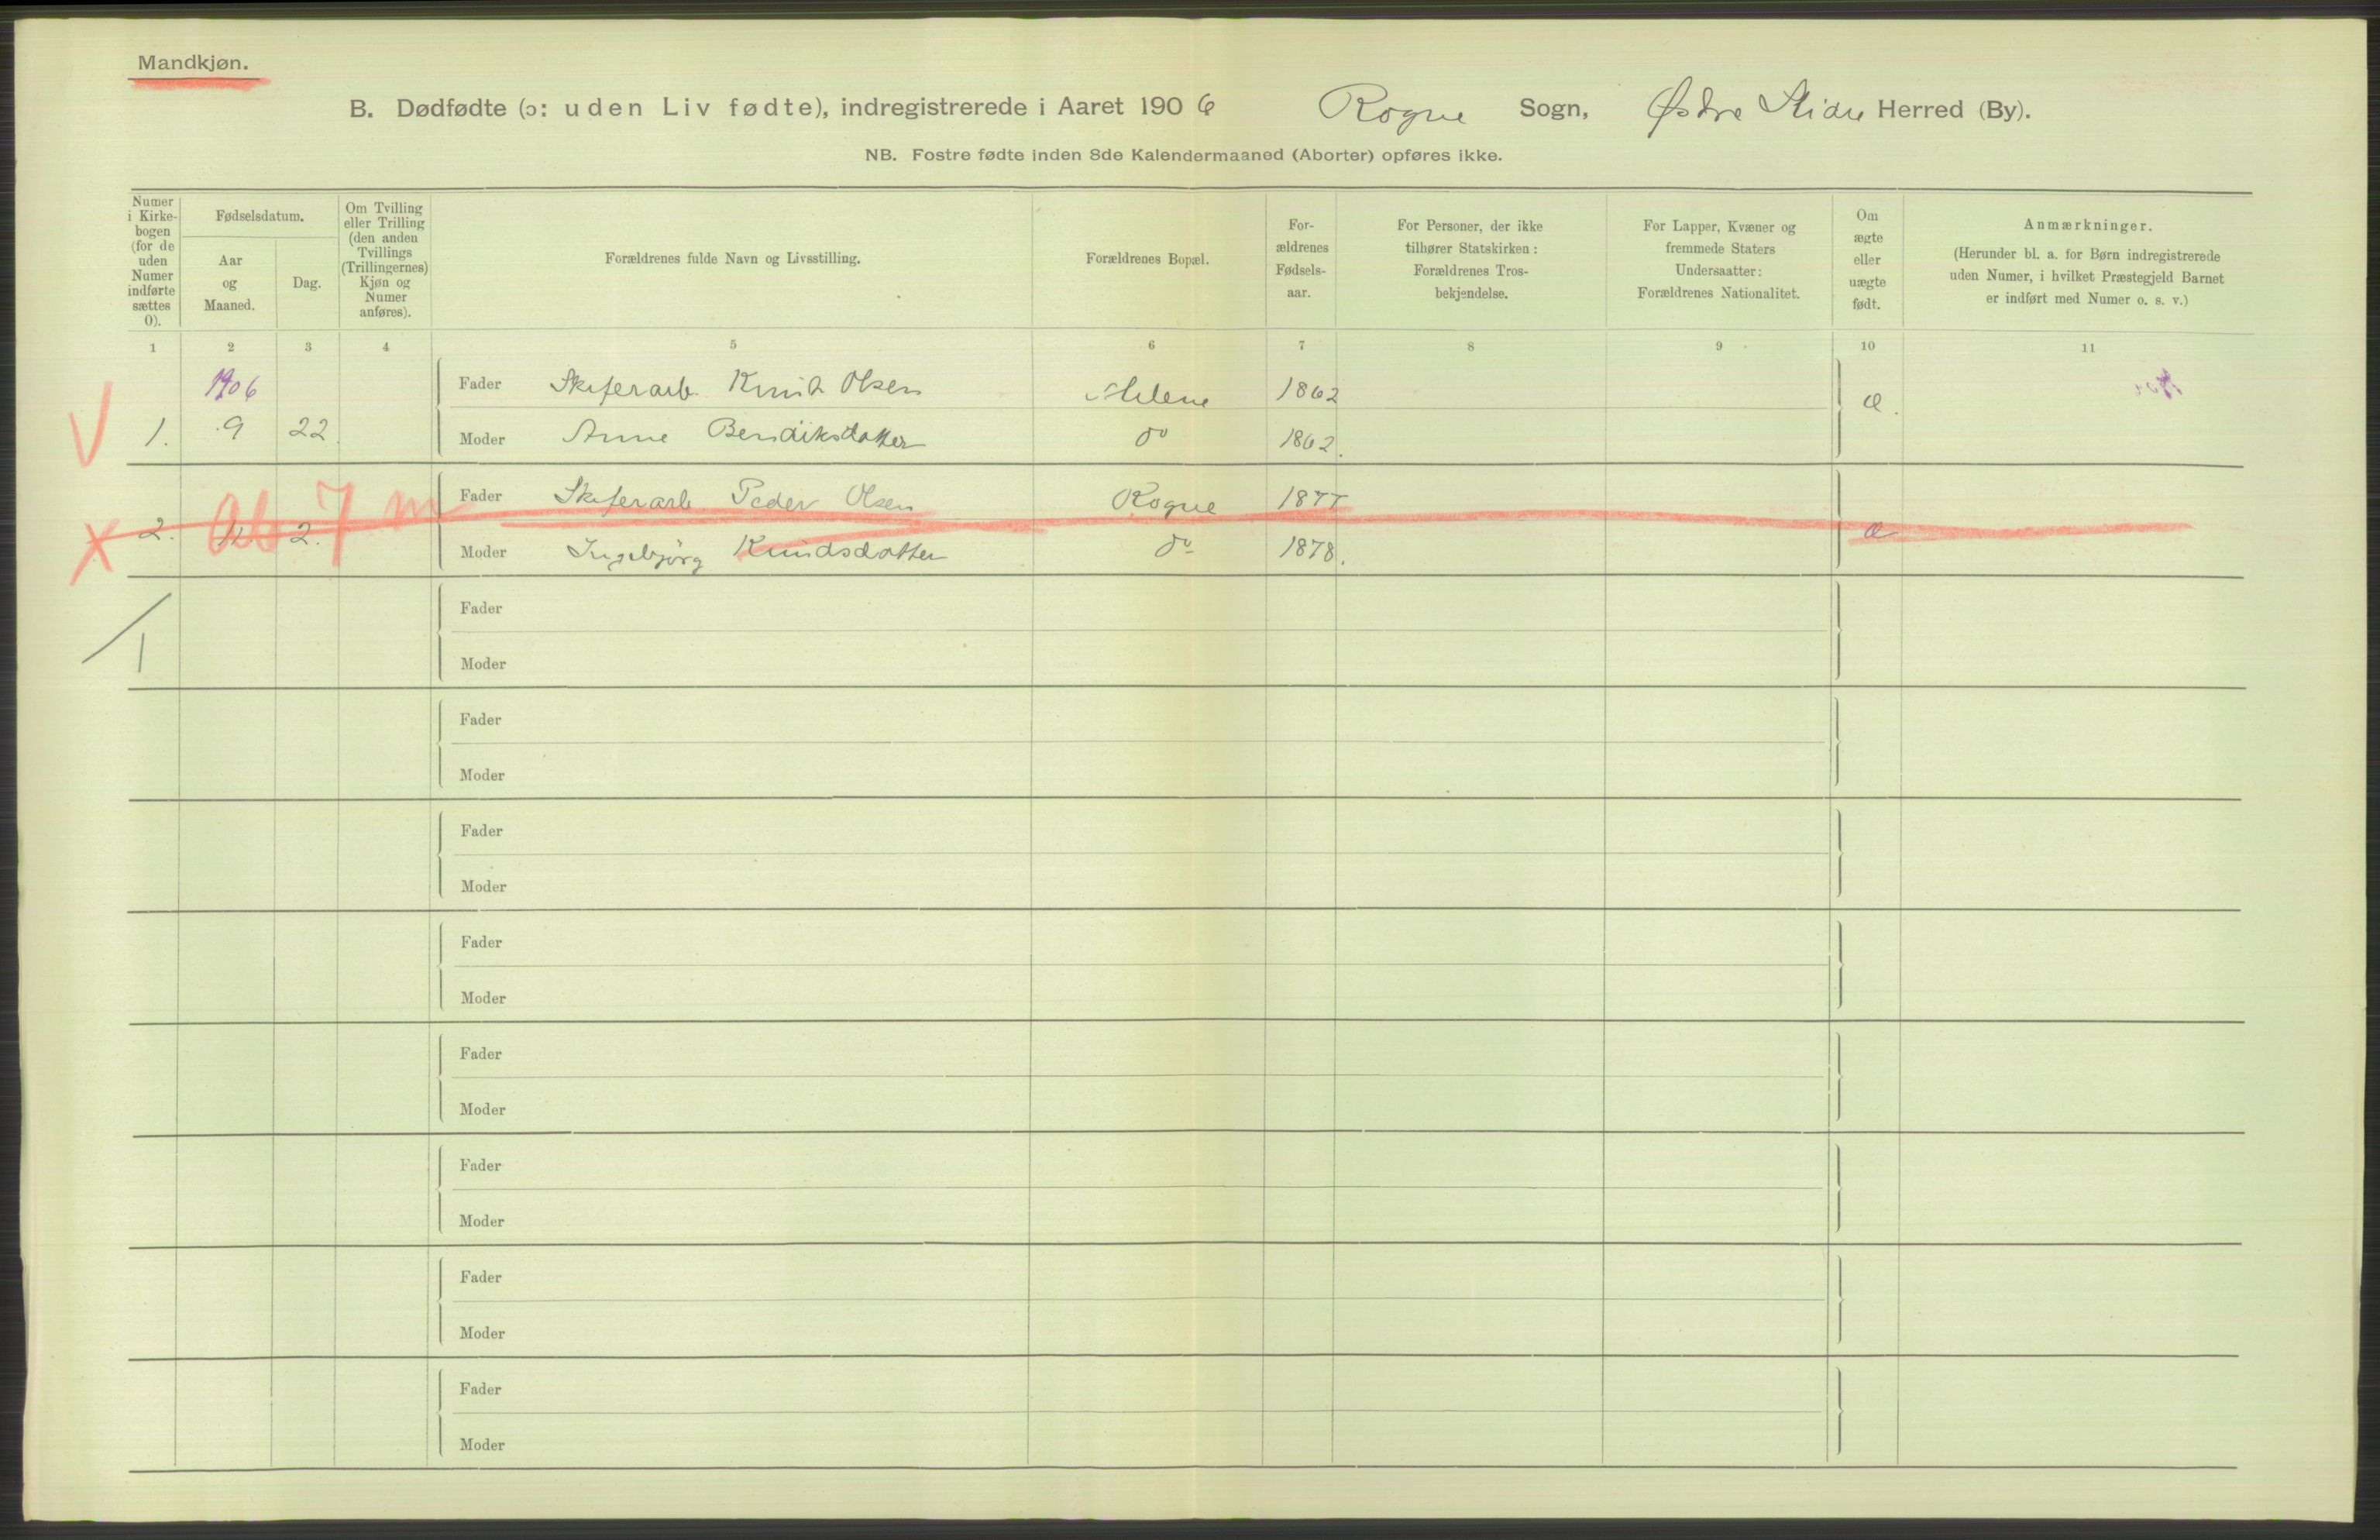 Mandkjøn.
B. Dødfødte (ɔ: uden Liv fødte), indregistrerede i Aaret 1906 Rogne Sogn, Østre Slidre Herred (By).
NB. Fostre fødte inden 8de Kalendermaaned (Aborter) opføres ikke.
Numer i Kirkebogen (for de uden Numer indførte sættes 0).
Fødselsdatum.
Aar og Maaned.
Dag.
Om Tvilling eller Trilling (den anden Tvillings (Trillingernes) Kjøn og Numer anføres).
Forældrenes fulde Navn og Livsstilling.
Forældrenes Bopæl.
Forældrenes Fødselsaar.
For Personer, der ikke tilhører Statskirken: Forældrenes Trosbekjendelse.
For Lapper, Kvæner og fremmede Staters Undersaatter: Forældrenes Nationalitet.
Om ægte eller uægte født.
Anmærkninger. (Herunder bl. a. for Børn indregistrerede uden Numer, i hvilket Præstegjeld Barnet er indført med Numer o. s. v.)
1 2 3 4 5 6 7 8 9 10 11
1906 Fader Skiferarb. Knut Olsen 1862 æ.
V 1. 9 22. Moder Anne Bendiksdatter do 1862.
Fader Skiferarb. Peder Olsen Rogne 1877
X 2. Ab 7 m 2. Moder Ingebjørg Knudsdatter do 1878. æ
Fader
1
Moder
Fader
Moder
Fader
Moder
Fader
Moder
Fader
Moder
Fader
Moder
Fader
Moder
Fader
Moder